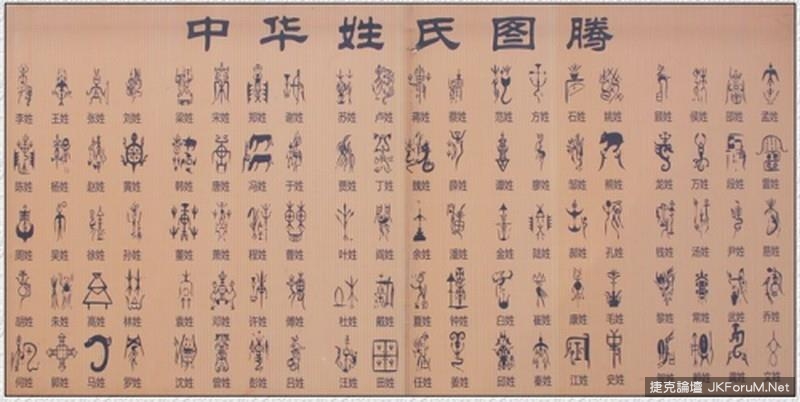 中华姓氏图腾
李姓 王姓 张姓 刘姓 梁姓 宋姓 郑姓 谢姓 苏姓 卢姓 蒋姓 蔡姓 范姓 方姓 石姓 姚姓 顾姓 侯姓 邵姓 孟姓
陈姓 杨姓 赵姓 黄姓 韩姓 唐姓 冯姓 于姓 贾姓 丁姓 魏姓 薛姓 谭姓 廖姓 邹姓 熊姓 龙姓 万姓 段姓 雷姓
周姓 吴姓 徐姓 孙姓 董姓 萧姓 程姓 曹姓 叶姓 阎姓 余姓 潘姓 金姓 陆姓 郝姓 孔姓 钱姓 汤姓 尹姓 易姓
胡姓 朱姓 高姓 林姓 袁姓 邓姓 许姓 傅姓 杜姓 戴姓 夏姓 钟姓 白姓 崔姓 康姓 毛姓 黎姓 常姓 武姓 乔姓
何姓 郭姓 马姓 罗姓 沈姓 曾姓 彭姓 吕姓 汪姓 田姓 任姓 姜姓 邱姓 秦姓 江姓 史姓 贺姓 赖姓
捷克論壇 JKForuM.Net